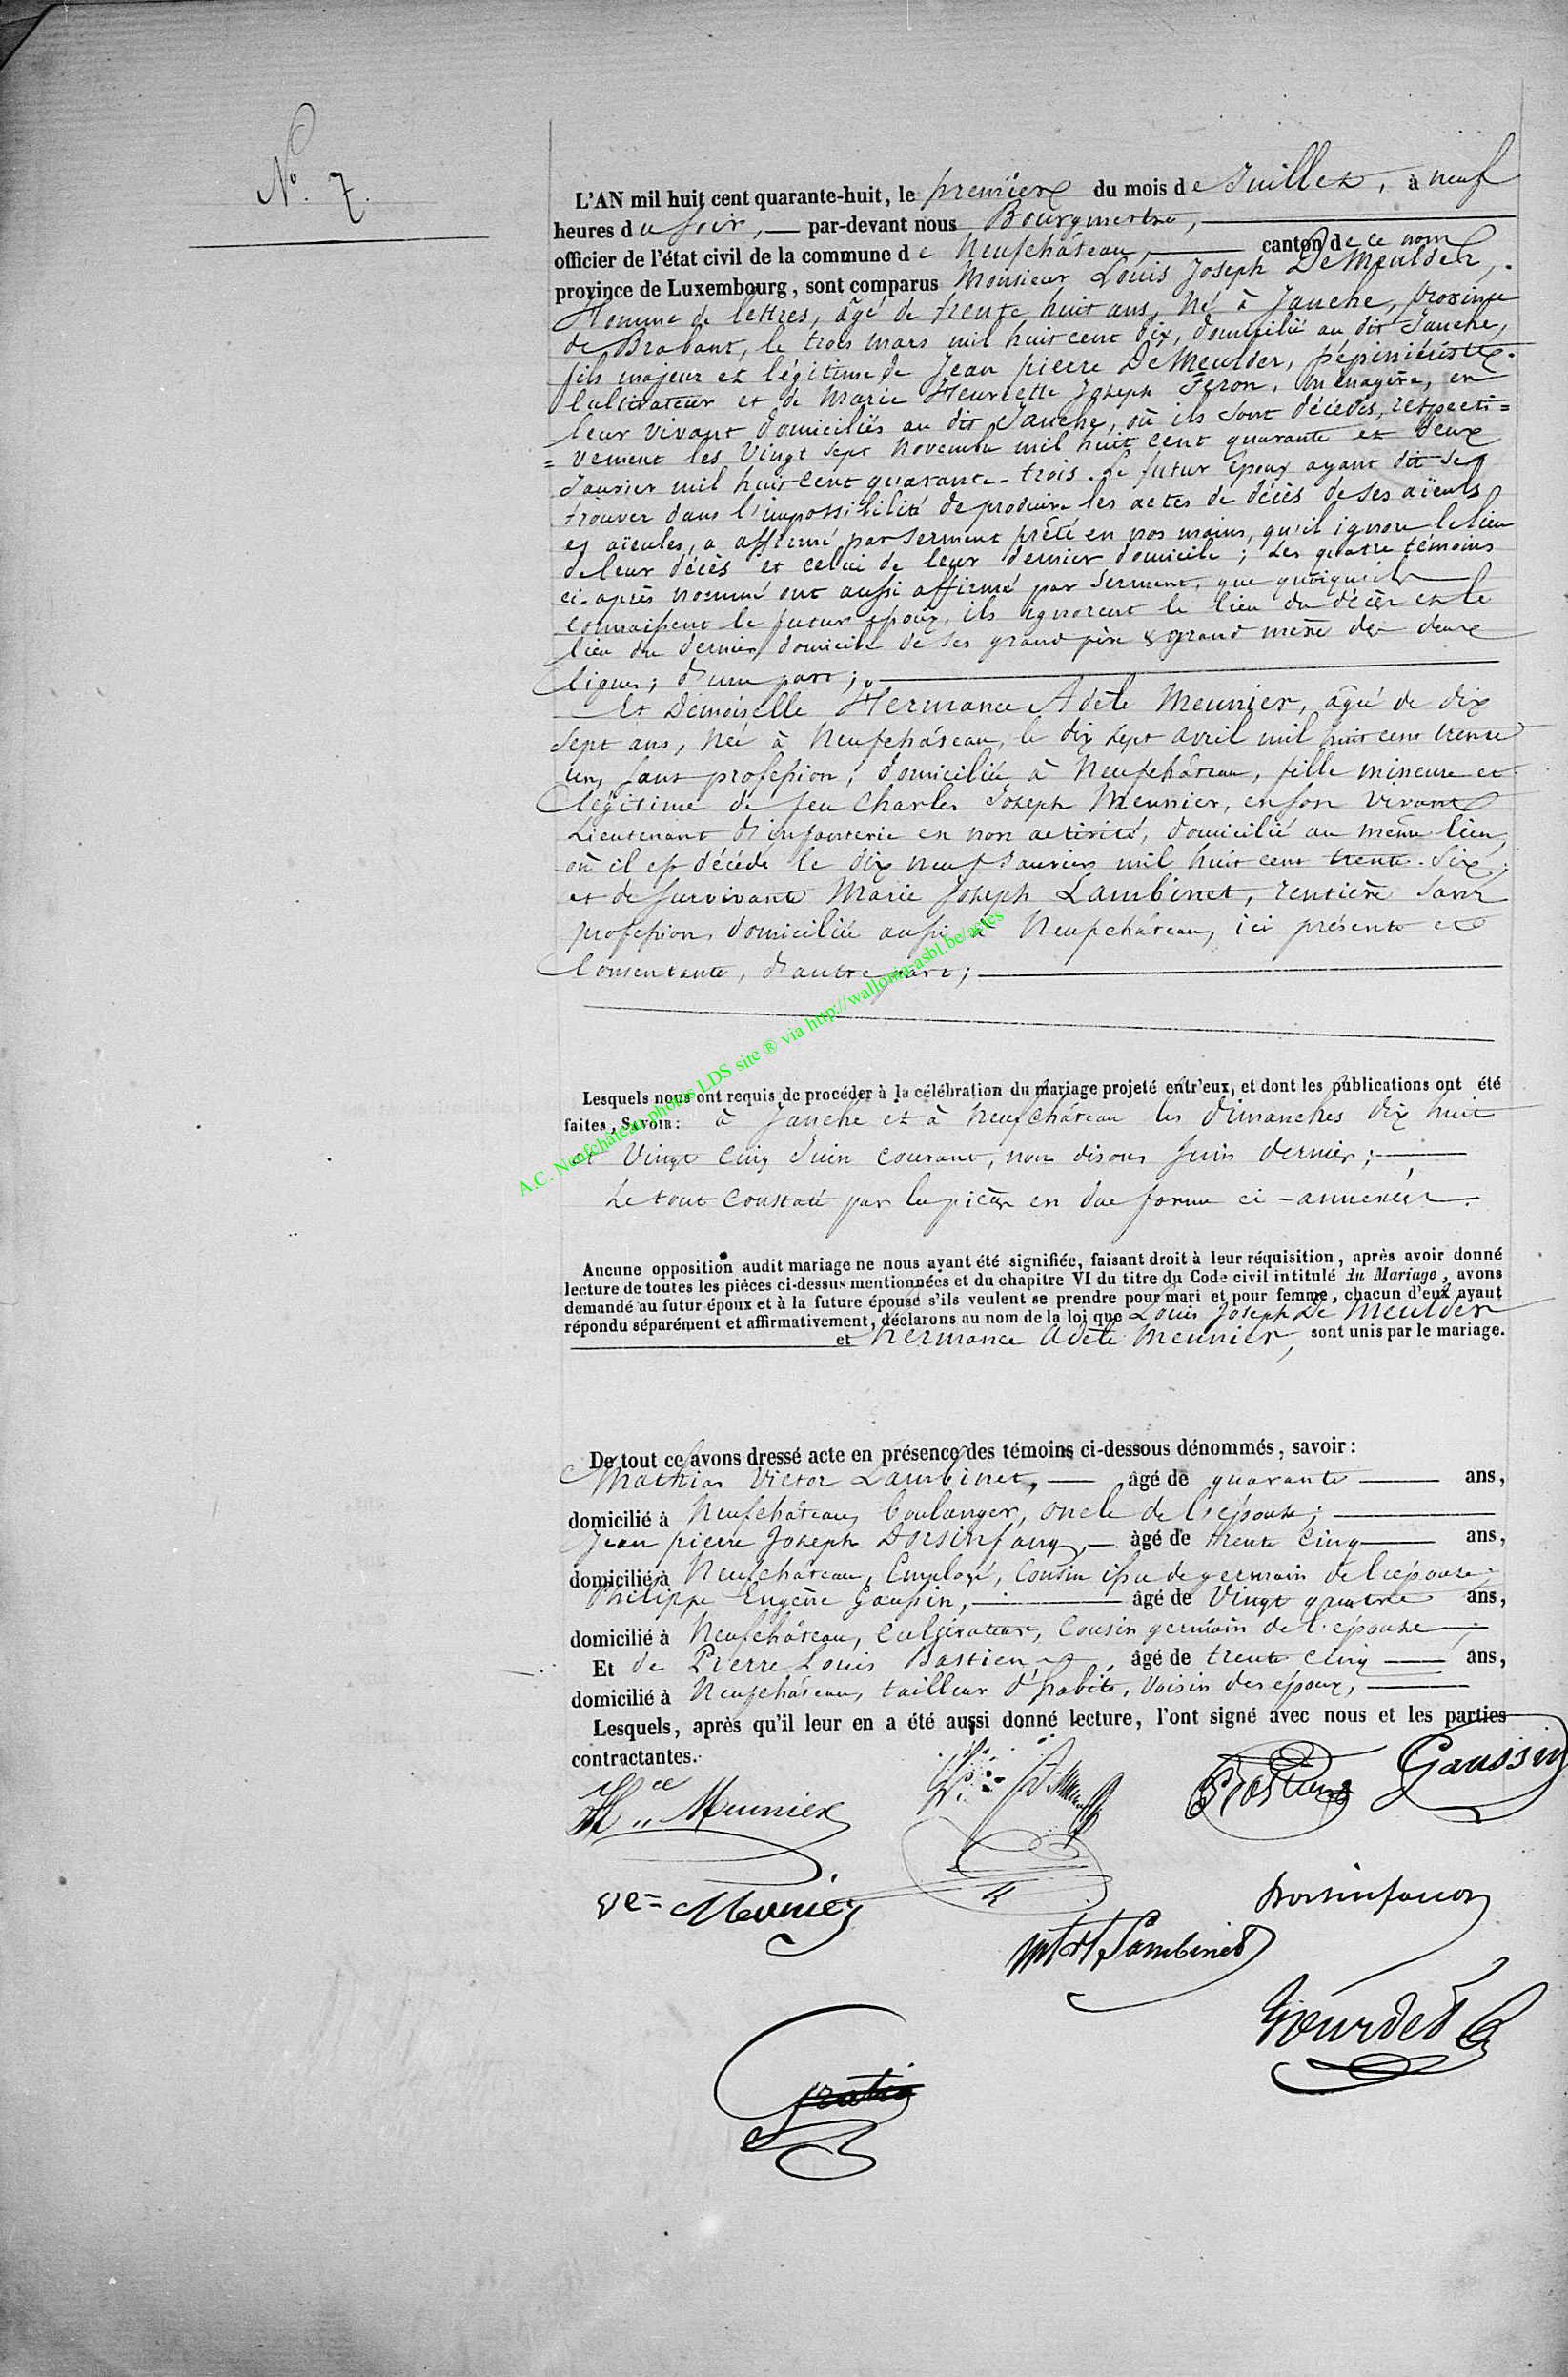 N° 7.
L'AN mil huit cent quarante-huit, le premier du mois de Juillet, à neuf
heures du soir, — par-devant nous Bourgmestre,
officier de l'état civil de la commune de Neufchâteau, canton de ce nom
province de Luxembourg, sont comparus Monsieur Louis Joseph DeMeulder,
Homme de lettres, âgé de trente huit ans, Né à Jauche, province
de Brabant, le trois mars mil huit cent dix, domicilié au dit Jauche,
fils majeur et légitime de Jean pierre DeMeulder, pépiniériste
Cultivateur et de Marie Henriette Joseph Feron, ménagère, en
leur vivant domiciliés au dit Jauche, où ils sont décédés, respecti=
=vement les vingt sept novembre mil huit cent quarante et deux
Janvier mil huit cent quarante-trois. Le futur époux ayant dit se
trouver dans l'impossibilité de produire les actes de décès de ses aïeuls
et aïeules, a affirmé par serment prêté en nos mains, qu'il ignore le lieu
de leur décès et celui de leur dernier domicile ; Les quatre témoins
ci-après nommé ont aussi affirmé par serment, que quoiqu'ils
connaissent le futur époux, ils ignorent le lieu du décès et le
lieu du dernier domicile de ses grand père & grand mère des deux
lignes ; d'une part ;
Et Demoiselle Hermance Adèle Meunier, âgée de dix
sept ans, Née à Neufchâteau, le dix sept avril mil huit cent trente
un, sans profession, domiciliée à Neufchâteau, fille mineure et
légitime de feu Charles Joseph Meunier, en son vivant
Lieutenant d'infanterie en non activité, domicilié au même lieu
où il est décédé le dix neuf Janvier mil huit cent trente-six,
et de survivante Marie Joseph Lambinet, rentière sans
profession, domiciliée aussi à Neufchâteau, ici présente et
Consentante, d'autre part ;
Lesquels nous ont requis de procéder à la célébration du mariage projeté entr'eux, et dont les publications ont été
faites, SAVOIR : à Jauche et à Neufchâteau les dimanches dix huit
et Vingt cinq Juin courant, non disons Juin dernier ;
Le tout constaté par les pièces en due forme ci-annexées.
Aucune opposition audit mariage ne nous ayant été signifiée, faisant droit à leur réquisition, après avoir donné
lecture de toutes les pièces ci-dessus mentionnées et du chapitre VI du titre du Code civil intitulé du Mariage, avons
demandé au futur époux et à la future épouse s'ils veulent se prendre pour mari et pour femme, chacun d'eux ayant
répondu séparément et affirmativement, déclarons au nom de la loi que Louis Joseph De Meulder
et Hermance Adèle Meunier, sont unis par le mariage.
De tout ce avons dressé acte en présence des témoins ci-dessous dénommés, savoir :
Mathias Victor Lambinet, — âgé de quarante — ans,
domicilié à Neufchâteau, boulanger, oncle de l'épouse ;
Jean pierre Joseph Dorsinfang, — âgé de trente cinq — ans,
domicilié à Neufchâteau, Employé, Cousin issu de germain de l'épouse
Philippe Eugène Gaussin, — âgé de Vingt quatre ans,
domicilié à Neufchâteau, Cultivateur, Cousin germain de l'épouse ;
Et de Pierre Louis Bastien, âgé de trente cinq — ans,
domicilié à Neufchâteau, tailleur d'habits, voisin des époux,
Lesquels, après qu'il leur en a été aussi donné lecture, l'ont signé avec nous et les parties
contractantes.
Hce Meunier
Bastien
Gaussin
Ve= Meunier
Dorsinfang
Mt Vt Lambinet
Gourdet
A.C. Neufchâteau photos LDS site ® via http://wallonia-asbl.be/actes